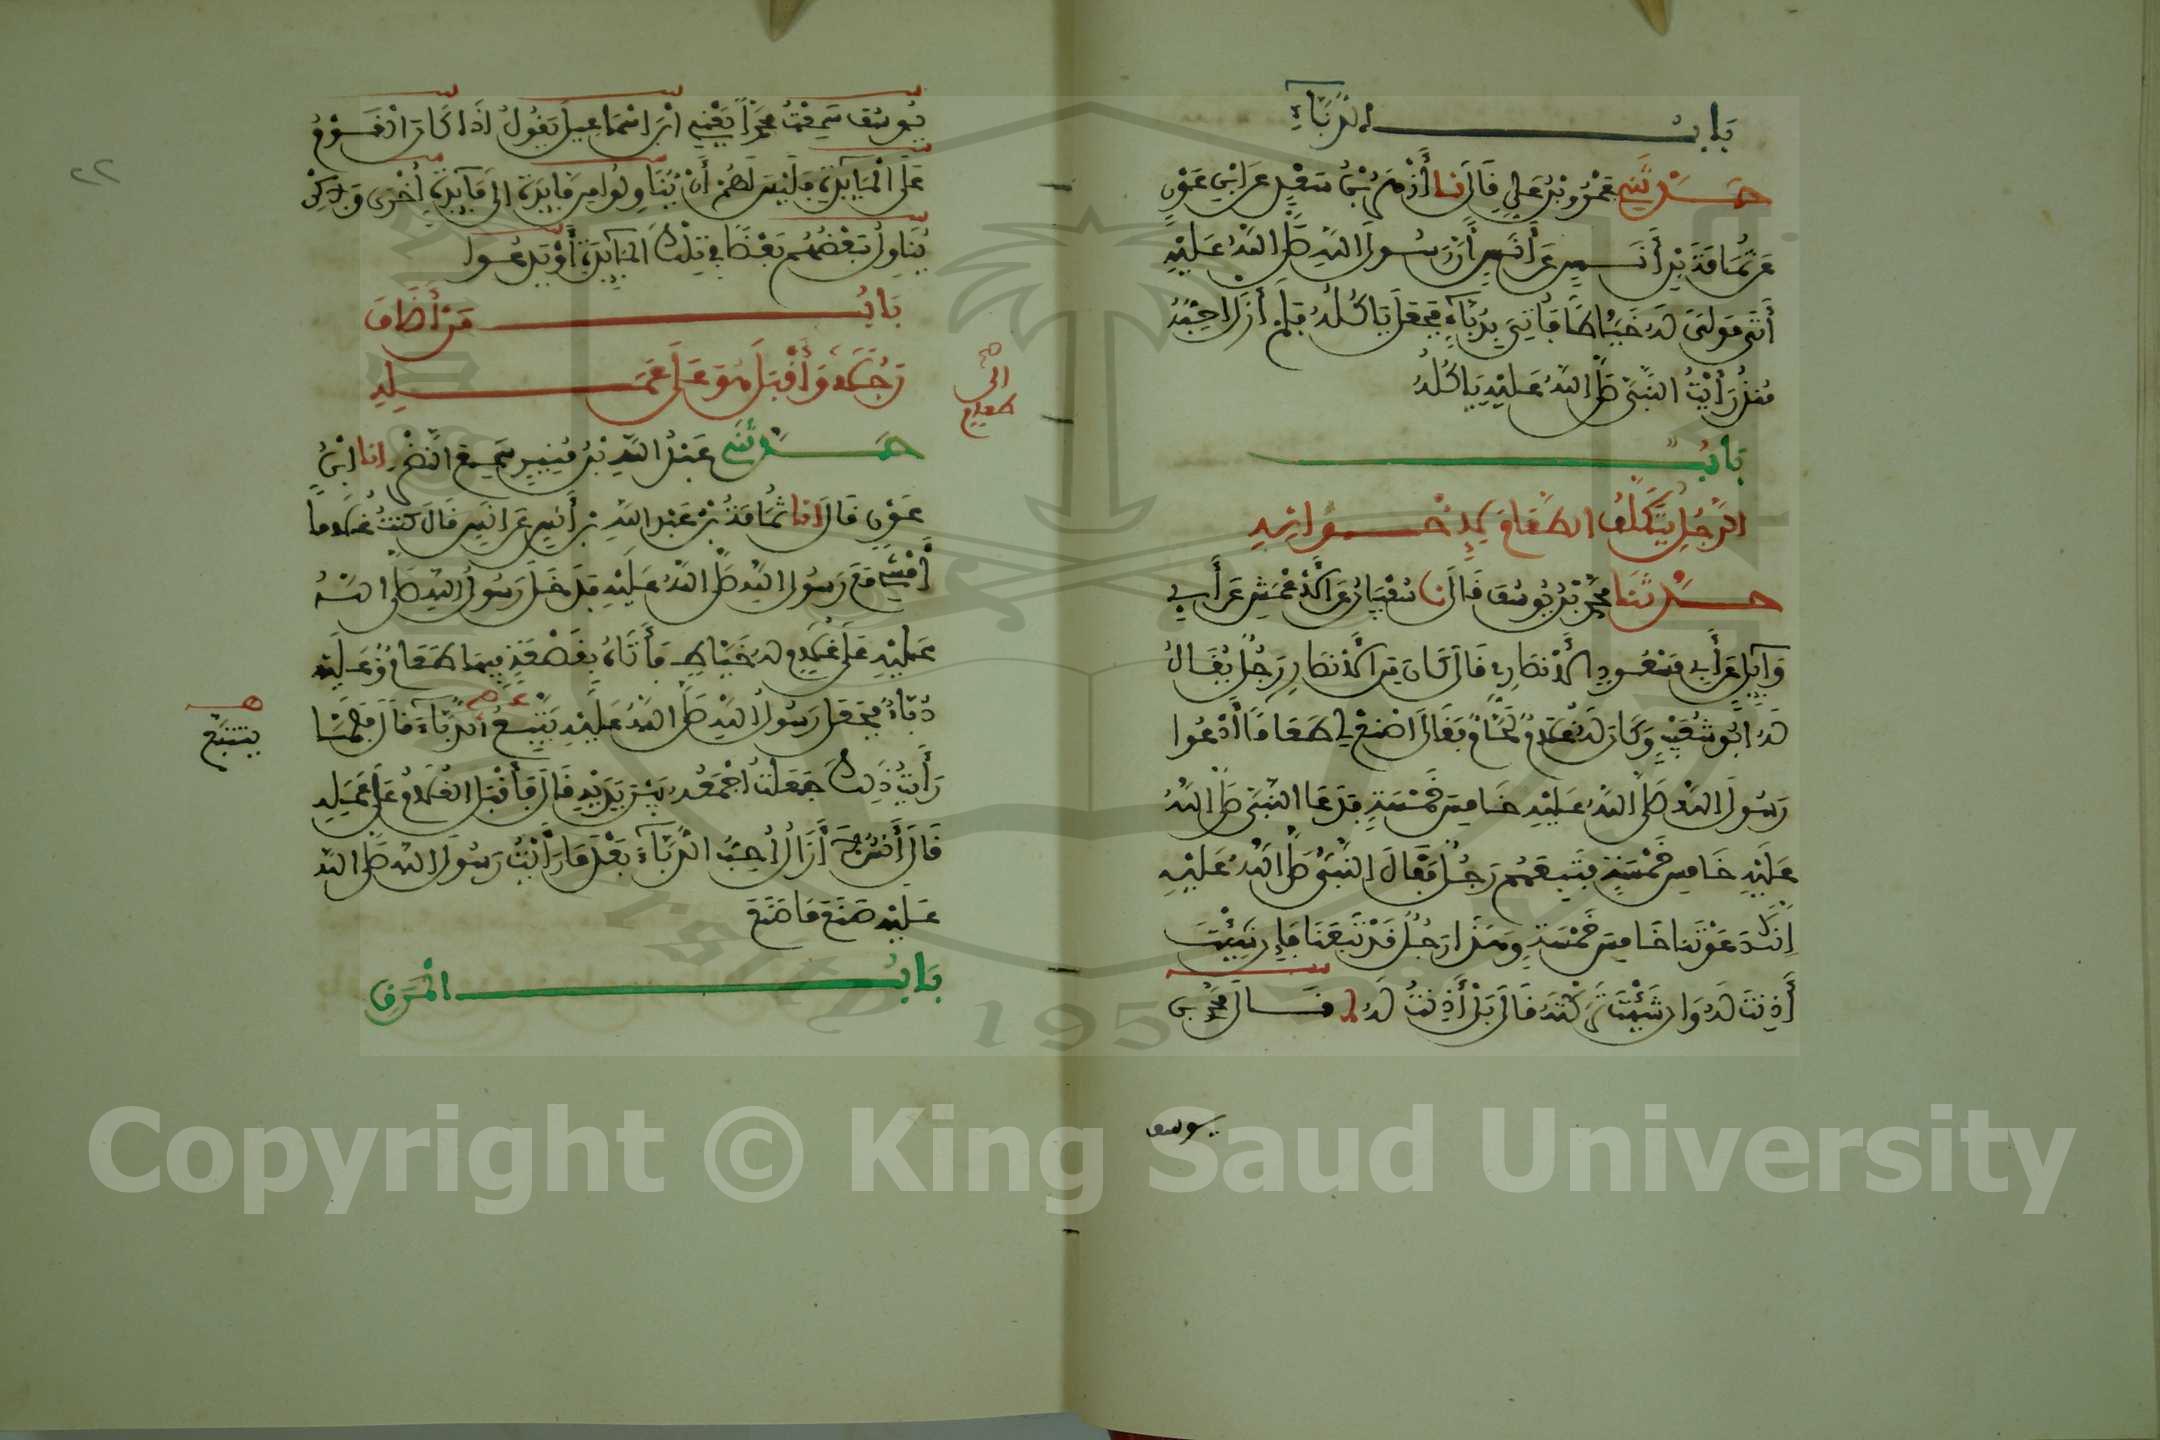 بَابُ الدُّبَّاءِ
حَدَّثَنِي عَمْرُو بْنُ عَلِيٍّ قَالَ نا أَزْهَرُ بْنُ سَعْدٍ عَنِ ابْنِ عَوْنٍ
عَنْ ثُمَامَةَ بْنِ أَنَسٍ عَنْ أَنَسٍ أَنَّ رَسُولَ اللهِ صَلَّى اللهُ عَلَيْهِ
أَتَى مَوْلًى لَهُ خَيَّاطًا فَأُتِيَ بِدُبَّاءٍ فَجَعَلَ يَاكُلُهُ فَلَمْ أَزَلْ أُحِبُّهُ
مُنْذُ رَأَيْتُ النَّبِيَّ صَلَّى اللهُ عَلَيْهِ يَاكُلُهُ
بَابُ
الرَّجُلِ يَتَكَلَّفُ الطَّعَامَ لِإِخْوَانِهِ
حَدَّثَنَا مُحَمَّدُ بْنُ يُوسُفَ قَالَ نا سُفْيَانُ عَنِ الْأَعْمَشِ عَنْ أَبِي
وَائِلٍ عَنْ أَبِي مَسْعُودٍ الْأَنْصَارِيِّ قَالَ كَانَ مِنَ الْأَنْصَارِ رَجُلٌ يُقَالُ
لَهُ أَبُو شُعَيْبٍ وَكَانَ لَهُ غُلَامٌ لَحَّامٌ فَقَالَ اصْنَعْ لِي طَعَامًا أَدْعُوا
رَسُولَ اللهِ صَلَّى اللهُ عَلَيْهِ خَامِسَ خَمْسَةٍ فَدَعَا النَّبِيَّ صَلَّى اللهُ
عَلَيْهِ خَامِسَ خَمْسَةٍ فَتَبِعَهُمْ رَجُلٌ فَقَالَ النَّبِيُّ صَلَّى اللهُ عَلَيْهِ
إِنَّكَ دَعَوْتَنَا خَامِسَ خَمْسَةٍ وَهَذَا رَجُلٌ قَدْ تَبِعَنَا فَإِنْ شِئْتَ
أَذِنْتَ لَهُ وَإِنْ شِئْتَ تَرَكْتَهُ قَالَ بَلْ أَذِنْتُ لَهُ قَالَ مُحَمَّدُ بْنُ
يوسف
٢٢
يُوسُفَ سَمِعْتُ مُحَمَّدًا يَعْنِي ابْنَ إِسْمَاعِيلَ يَقُولُ إِذَا كَانَ الْقَوْمُ
عَلَى الْمَائِدَةِ فَلَيْسَ لَهُمْ أَنْ يُنَاوِلُوا مِنْ مَائِدَةٍ إِلَى مَائِدَةٍ أُخْرَى وَلَكِنْ
يُنَاوِلُ بَعْضُهُمْ بَعْضًا فِي تِلْكَ الْمَائِدَةِ أَوْ يَدَعُوا
بَابُ مَنْ أَضَافَ
رَجُلًا وَأَقْبَلَ هُوَ عَلَى عَمَلِهِ
الى
طعام
حَدَّثَنِي عَبْدُ اللهِ بْنُ مُنِيرٍ سَمِعَ النَّضْرَ انا ابْنُ
عَوْنٍ قَالَ انا ثُمَامَةُ بْنُ عَبْدِ اللهِ بْنِ أَنَسٍ عَنْ أَنَسٍ قَالَ كُنْتُ غُلَامًا
أَمْشِي مَعَ رَسُولِ اللهِ صَلَّى اللهُ عَلَيْهِ فَدَخَلَ رَسُولُ اللهِ صَلَّى اللهُ
عَلَيْهِ عَلَى غُلَامٍ لَهُ خَيَّاطٍ فَأَتَاهُ بِقَصْعَةٍ فِيهَا طَعَامٌ وَعَلَيْهِ
دُبَّاءٌ فَجَعَلَ رَسُولُ اللهِ صَلَّى اللهُ عَلَيْهِ يَتَّبِعُ الدُّبَّاءَ قَالَ فَلَمَّا
يتتبع
رَأَيْتُ ذَلِكَ جَعَلْتُ أَجْمَعُهُ بَيْنَ يَدَيْهِ قَالَ فَأَقْبَلَ الْغُلَامُ عَلَى عَمَلِهِ
قَالَ أَنَسٌ لَا أَزَالُ أُحِبُّ الدُّبَّاءَ بَعْدَ مَا رَأَيْتُ رَسُولَ اللهِ صَلَّى اللهُ
عَلَيْهِ صَنَعَ مَا صَنَعَ
بَابُ الْمَرَقِ
Copyright © King Saud University